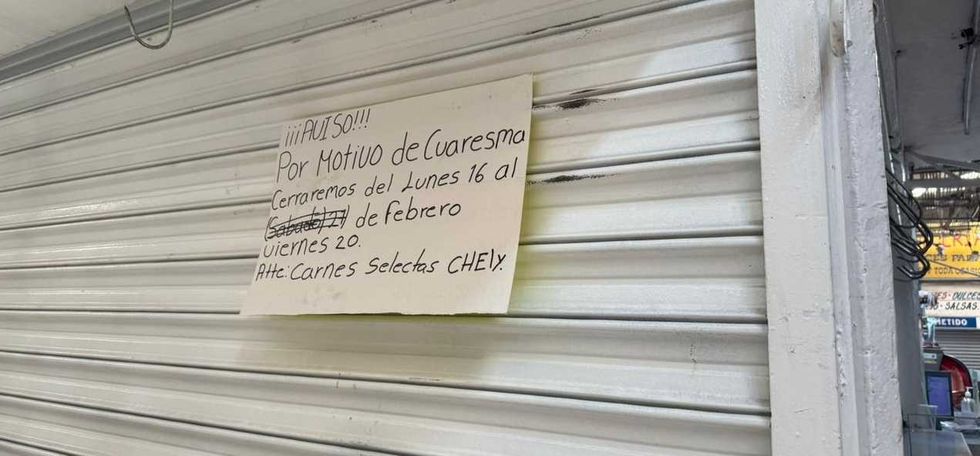 ¡¡¡AVISO!!!
Por Motivo de Cuaresma
Cerraremos del Lunes 16 al
(Sabado) 21) de Febrero
viernes 20.
Atte: Carnes Selectas CHELY.
TODA OCASI
DULCES
SALSAS
METIDO